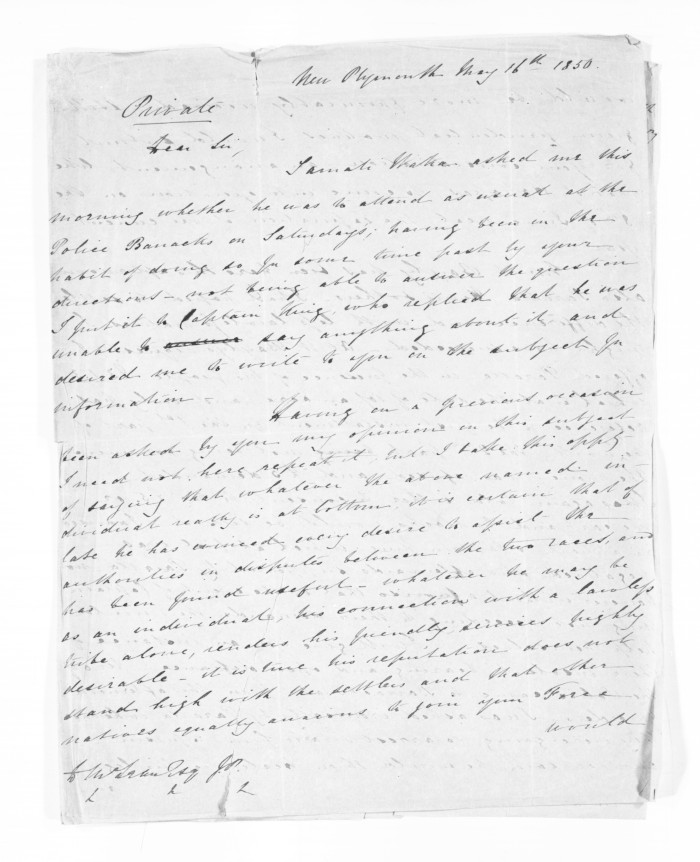 New Plymouth May 16th 1850.
Private
Dear Sir,
Tamati Waka asked me this
morning whether he was to attend as usual at the
Police Barracks on Saturdays, having been in the
habit of doing so for some time past by your
directions - not being able to answer the question
I put it to Captain King who replied that he was
unable to answer say anything about it and
desired me to write to you on the subject for
information -
Having on a previous occasion
been asked by you my opinion on this subject
I need not here repeat it but I take this oppty
of saying that whatever the above named in-
dividual really is at bottom it is certain that of
late he has evinced every desire to assist the
authorities in disputes between the two races, and
has been found useful - whatever he may be
as an individual, his connection with a lawless
tribe alone, renders his friendly services highly
desirable - it is true his reputation does not
stand high with the settlers and that other
natives equally anxious to join your Force
would
D McLean Esq J.P.